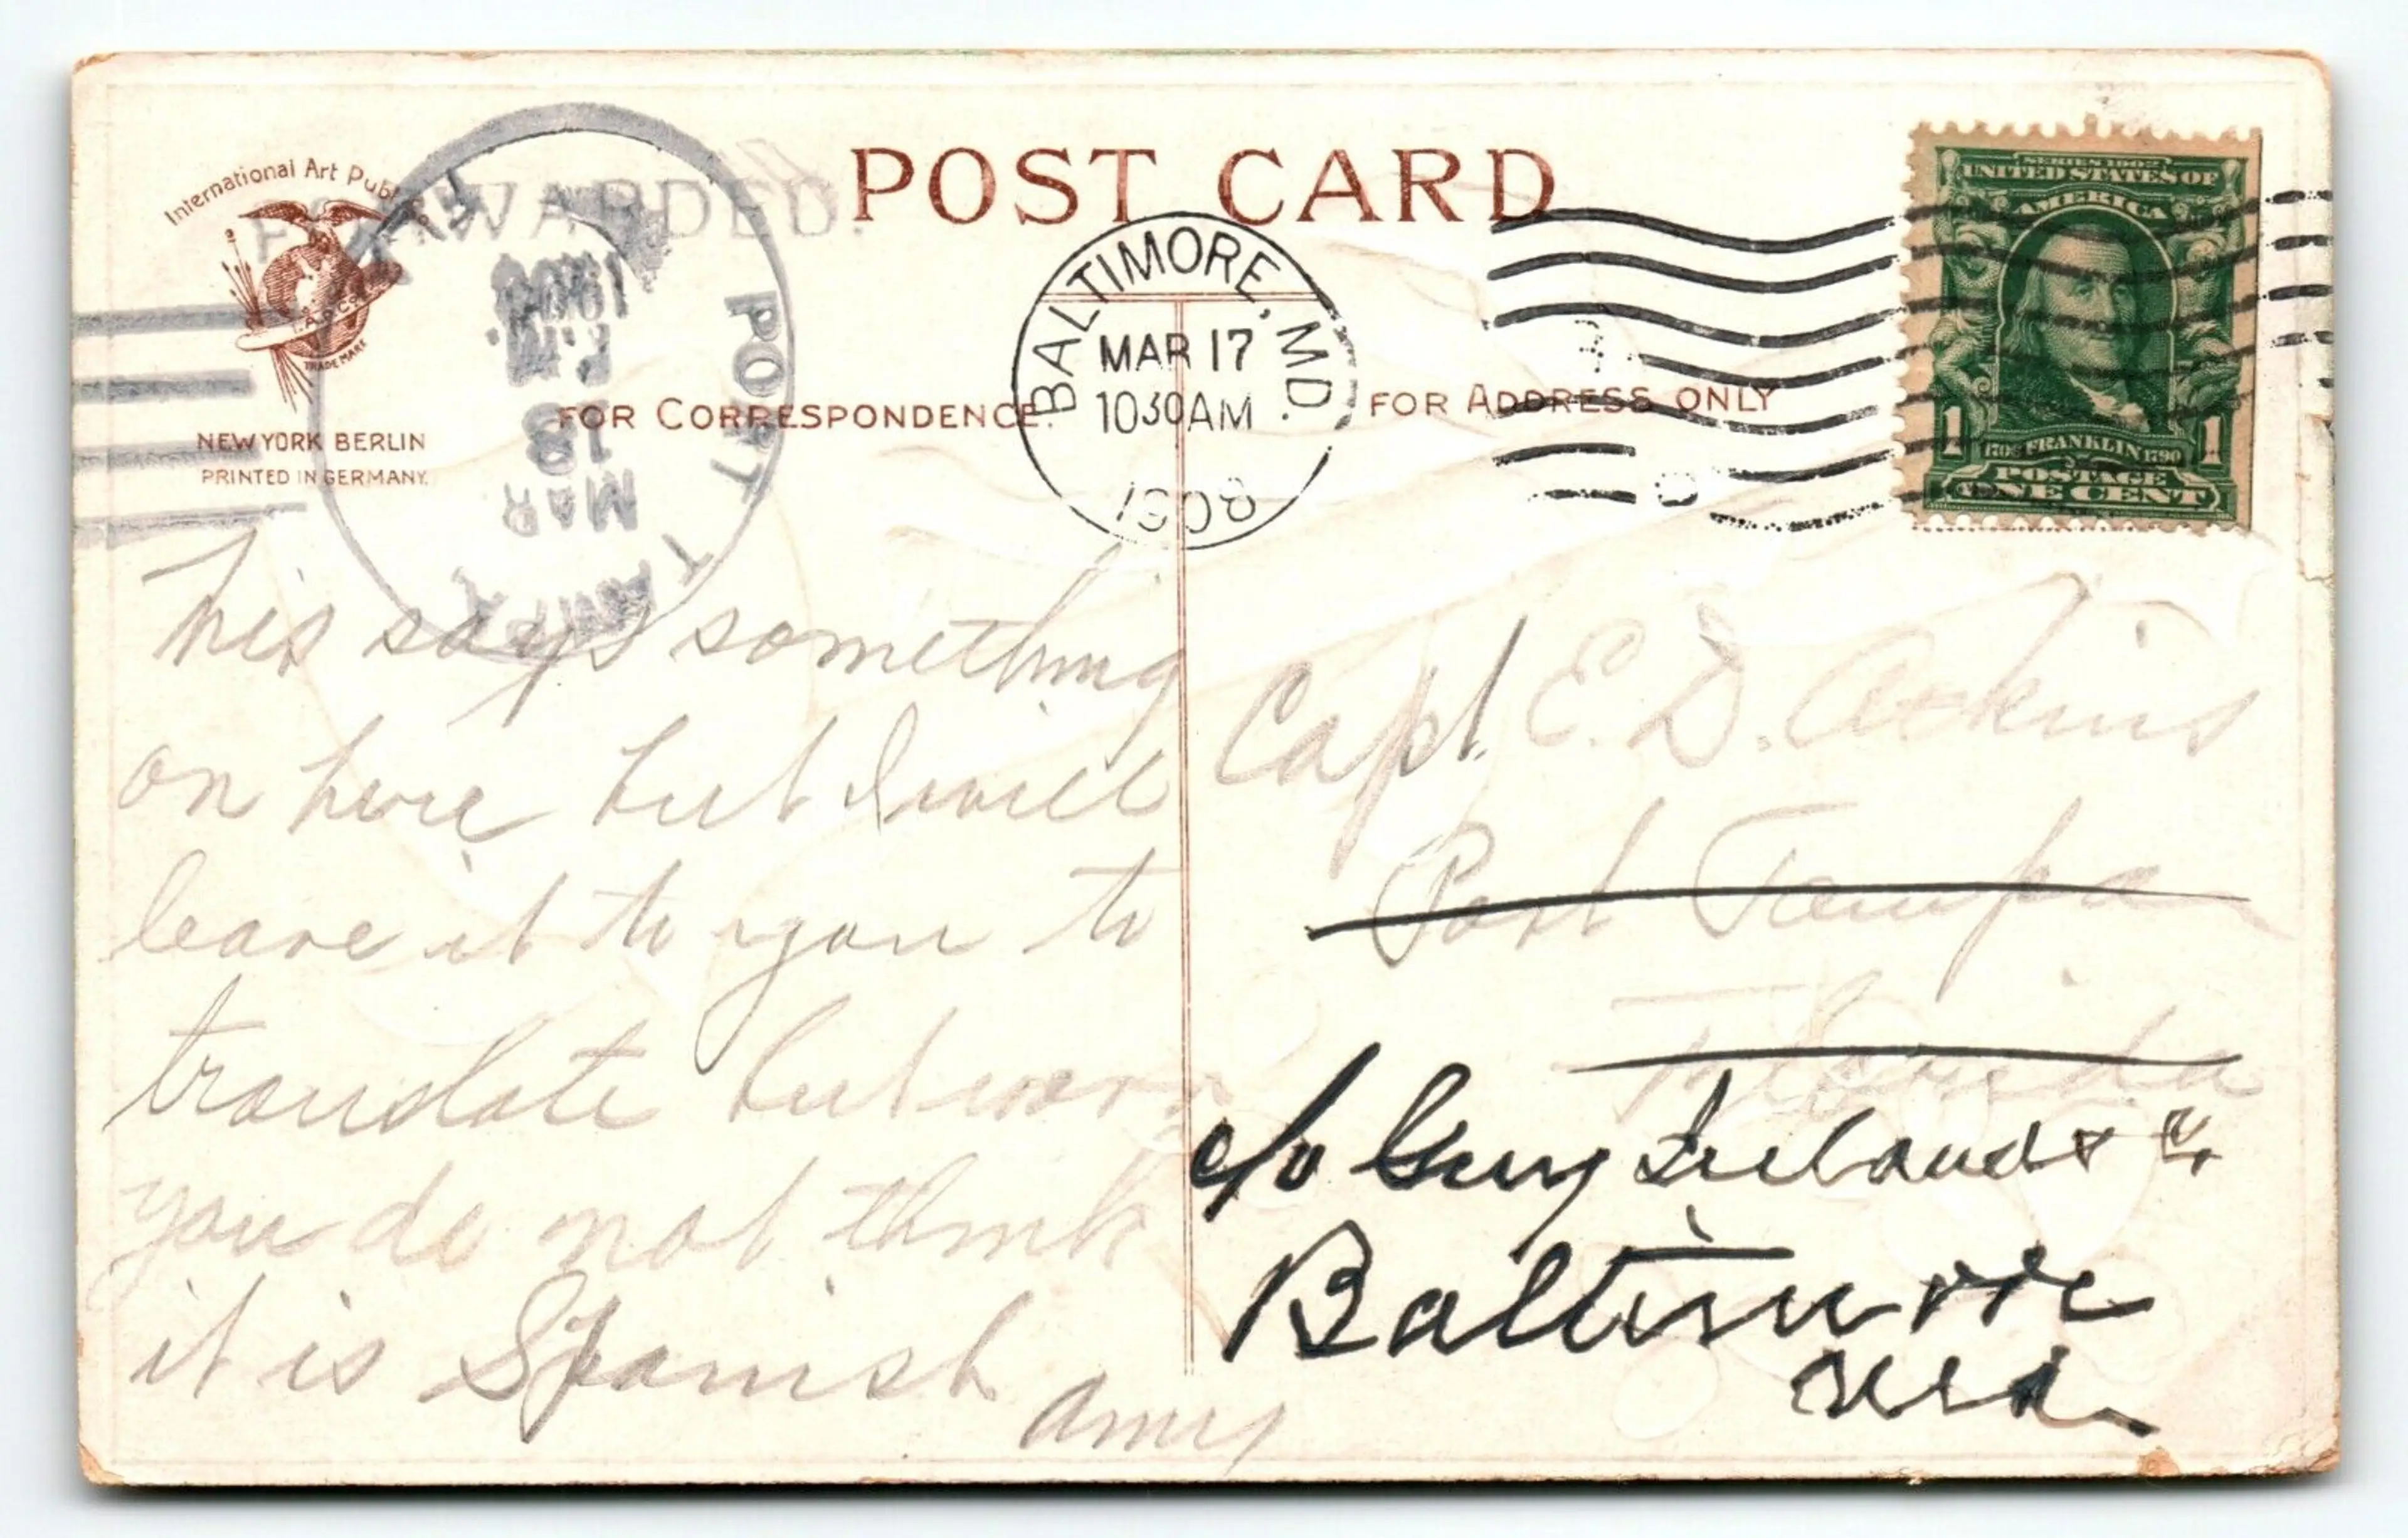 International Art Publ
FORWARDED.
POST CARD
I.A.P.Co.
TRADE MARK
NEW YORK BERLIN
PRINTED IN GERMANY.
PORT TAMPA
MAR
18
P.M.
1908
FOR CORRESPONDENCE.
BALTIMORE, MD.
MAR 17
1030AM
1908
FOR ADDRESS ONLY
SERIES 1902
UNITED STATES OF
AMERICA
1706 FRANKLIN 1790
POSTAGE
1 ONE CENT 1
This says something
on here but I will
leave it to you to
translate but
you do not think
it is Spanish
Amy
Capt. E. D. Askins
Port Tampa
Florida
c/o Guy
Baltimore
Md.